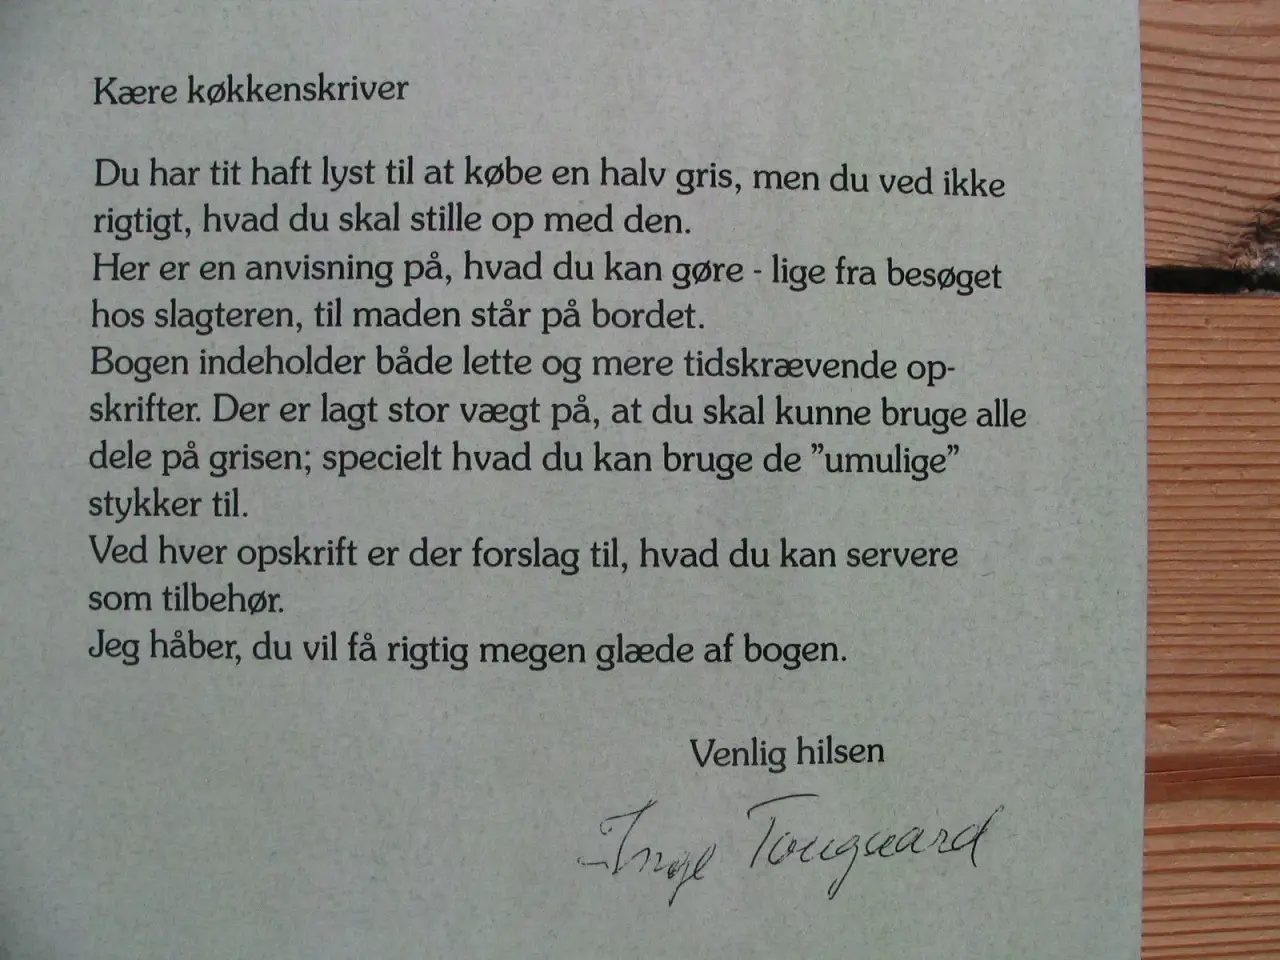 Kære køkkenskriver
Du har tit haft lyst til at købe en halv gris, men du ved ikke
rigtigt, hvad du skal stille op med den.
Her er en anvisning på, hvad du kan gøre - lige fra besøget
hos slagteren, til maden står på bordet.
Bogen indeholder både lette og mere tidskrævende op-
skrifter. Der er lagt stor vægt på, at du skal kunne bruge alle
dele på grisen; specielt hvad du kan bruge de ”umulige”
stykker til.
Ved hver opskrift er der forslag til, hvad du kan servere
som tilbehør.
Jeg håber, du vil få rigtig megen glæde af bogen.
Venlig hilsen
Inge Tougaard